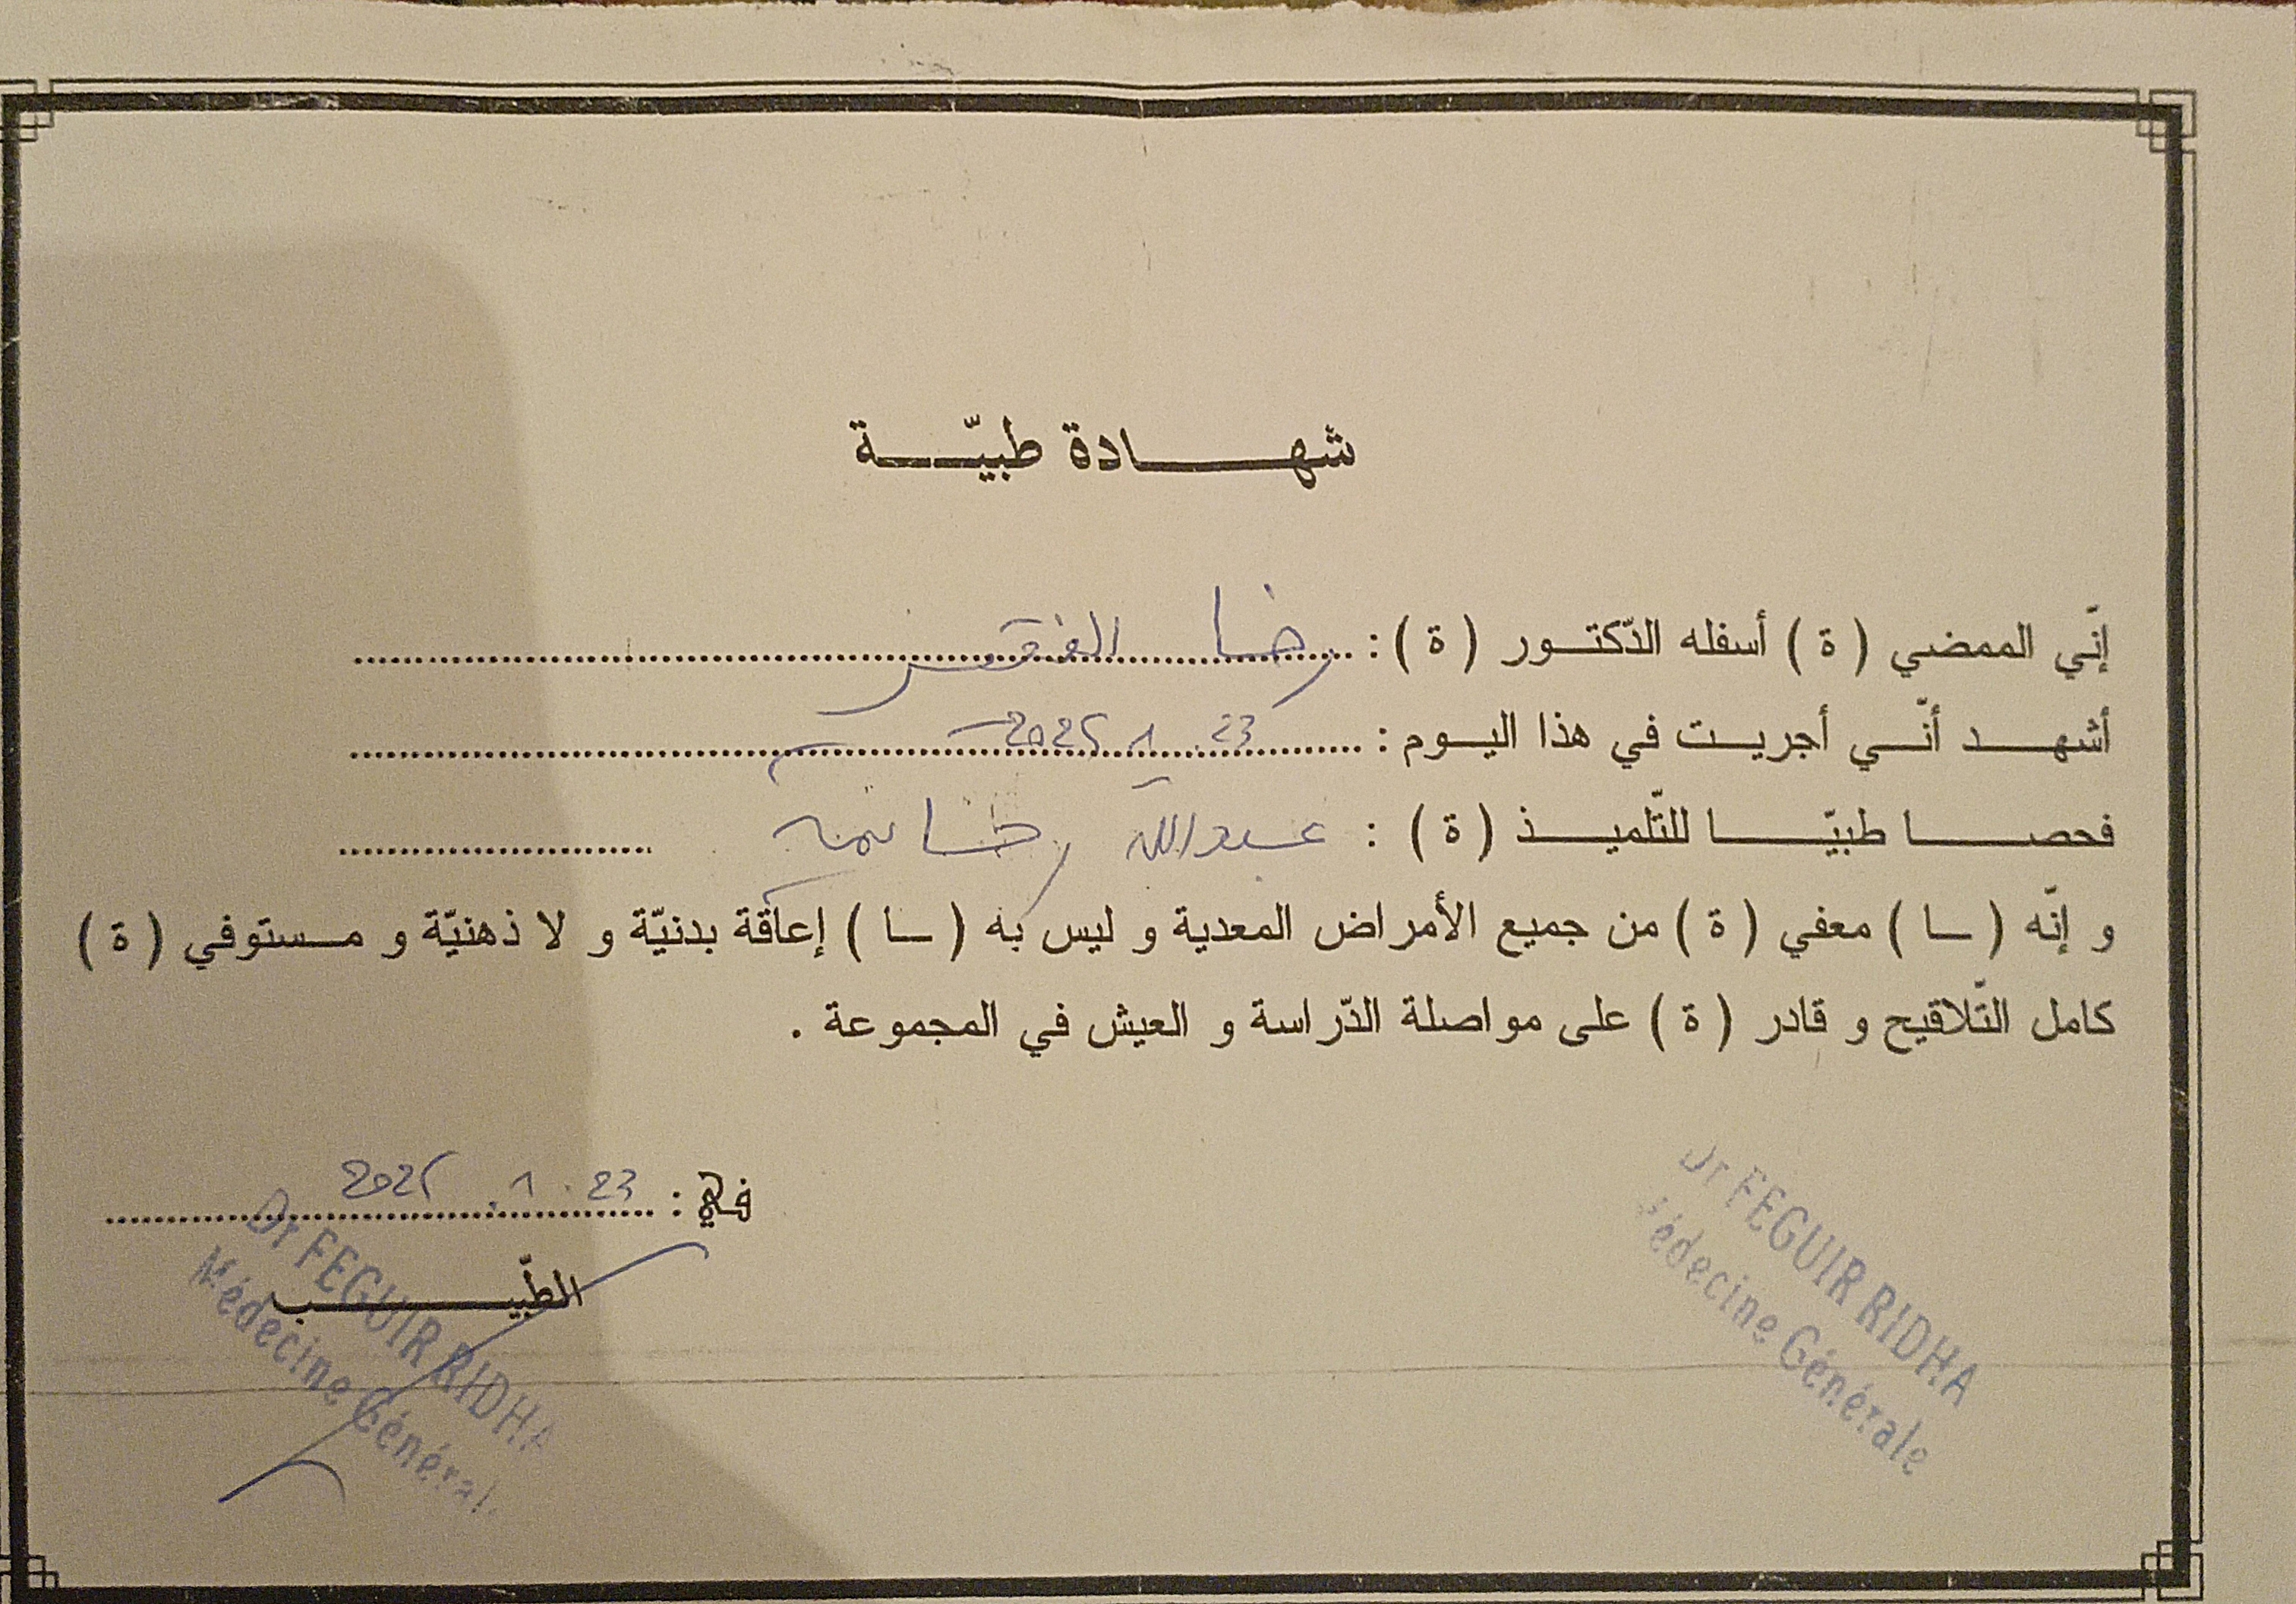 شهادة طبيّة
إنّي الممضي ( ة ) أسفله الدّكتور ( ة ) : رضا الفقير
أشهد أنّي أجريت في هذا اليوم : 23 . 1 . 2025
فحصا طبيّا للتّلميذ ( ة ) : عبد الله رضا
و إنّه ( ـا ) معفي ( ة ) من جميع الأمراض المعدية و ليس به ( ـا ) إعاقة بدنيّة و لا ذهنيّة و مستوفي ( ة )
كامل التّلاقيح و قادر ( ة ) على مواصلة الدّراسة و العيش في المجموعة .
في : 23 . 1 . 2025
الطّبيب
Dr FEGUIR RIDHA
Médecine Général
Dr FEGUIR RIDHA
édecine Générale